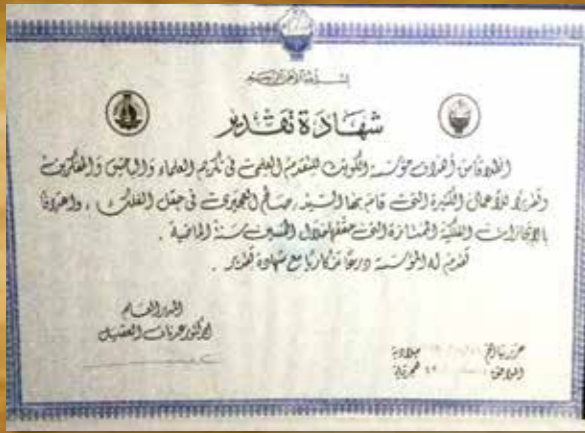 بسم الله الرحمن الرحيم
شهادة تقدير
انطلاقا من أهداف مؤسسة الكويت للتقدم العلمي في تكريم العلماء والباحثين والمفكرين
وتقديرًا للأعمال الكبيرة التي قام بها السيد / صالح العجيري في حقل الفلك ، واعترافا
بالإنجازات الفلكية الممتازة التي حققها خلال الخمسين سنة الماضية .
تقدم له المؤسسة درعًا تذكاريًا مع شهادة تقدير .
المدير العام
الدكتور عدنان العقيل
حرر بتاريخ ميلادية
الموافق هجرية